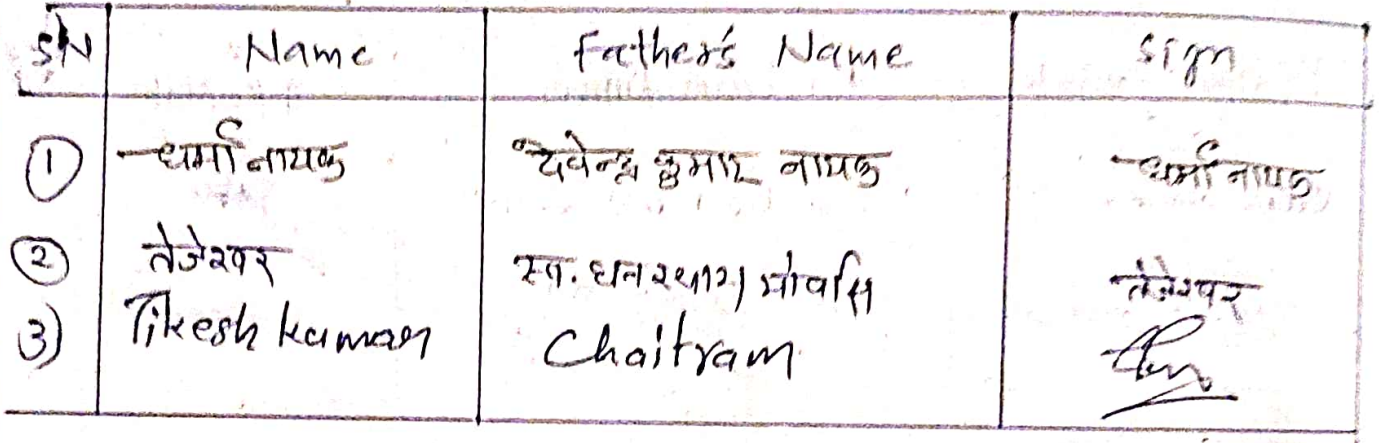 SN Name Father's Name Sign
1 धर्मा नायक देवेन्द्र कुमार नायक धर्मा नायक
2 तेजेश्वर स्व. तेजेश्वर
3) Tikesh kumar Chaitram